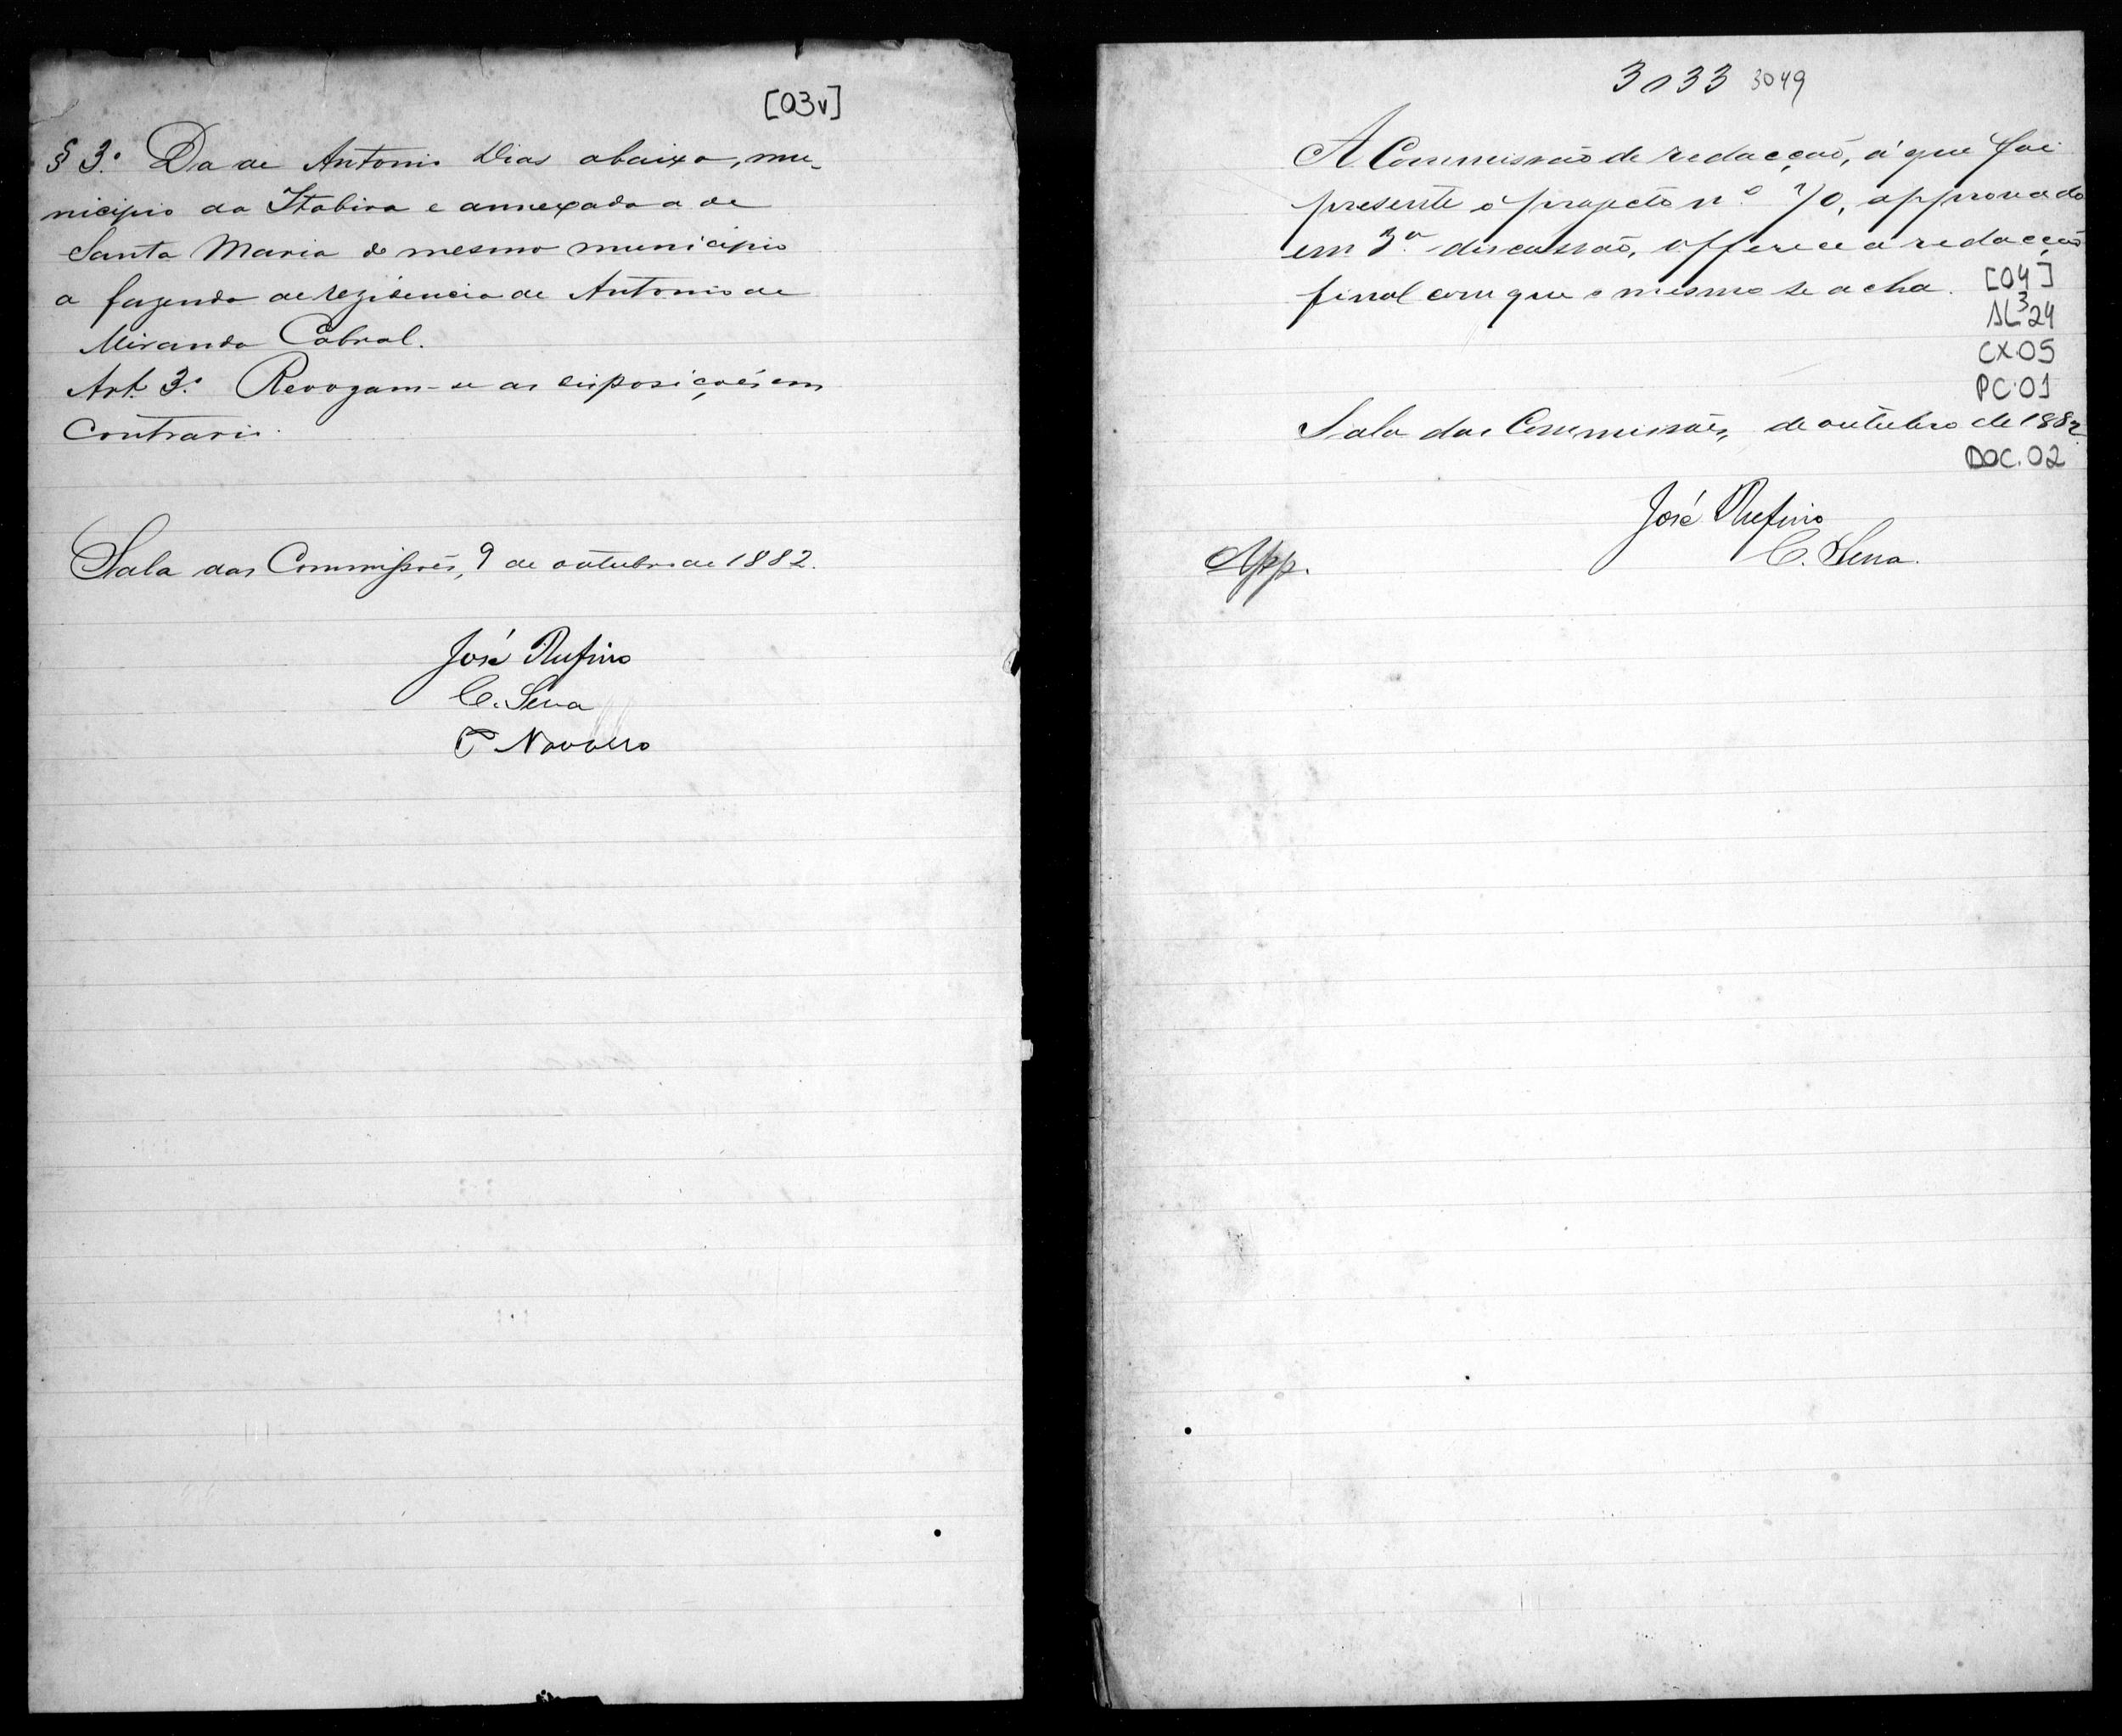 [03v]
§ 3.º Da de Antonio Dias abaixo, mu-
nicipio da Itabira e annexada a de
Santa Maria do mesmo municipio
a fazenda de rezidencia de Antonio de
Miranda Cabral.
Art. 3.º Revogam-se as disposições em
contrario.
Sala das Commissões, 9 de outubro de 1882.
José Rufino
C. Sena
Navarro
3033 3049
A Commissão de redacção, á que foi
presente o projecto n.º 70, approvado
em 3.ª discussão, offerece a redacção
final com que o mesmo se acha.
[04]
AL³24
CX.05
PC.01
Sala das Commissões, de outubro de 1882
DOC.02
José Rufino
C. Sena.
App.